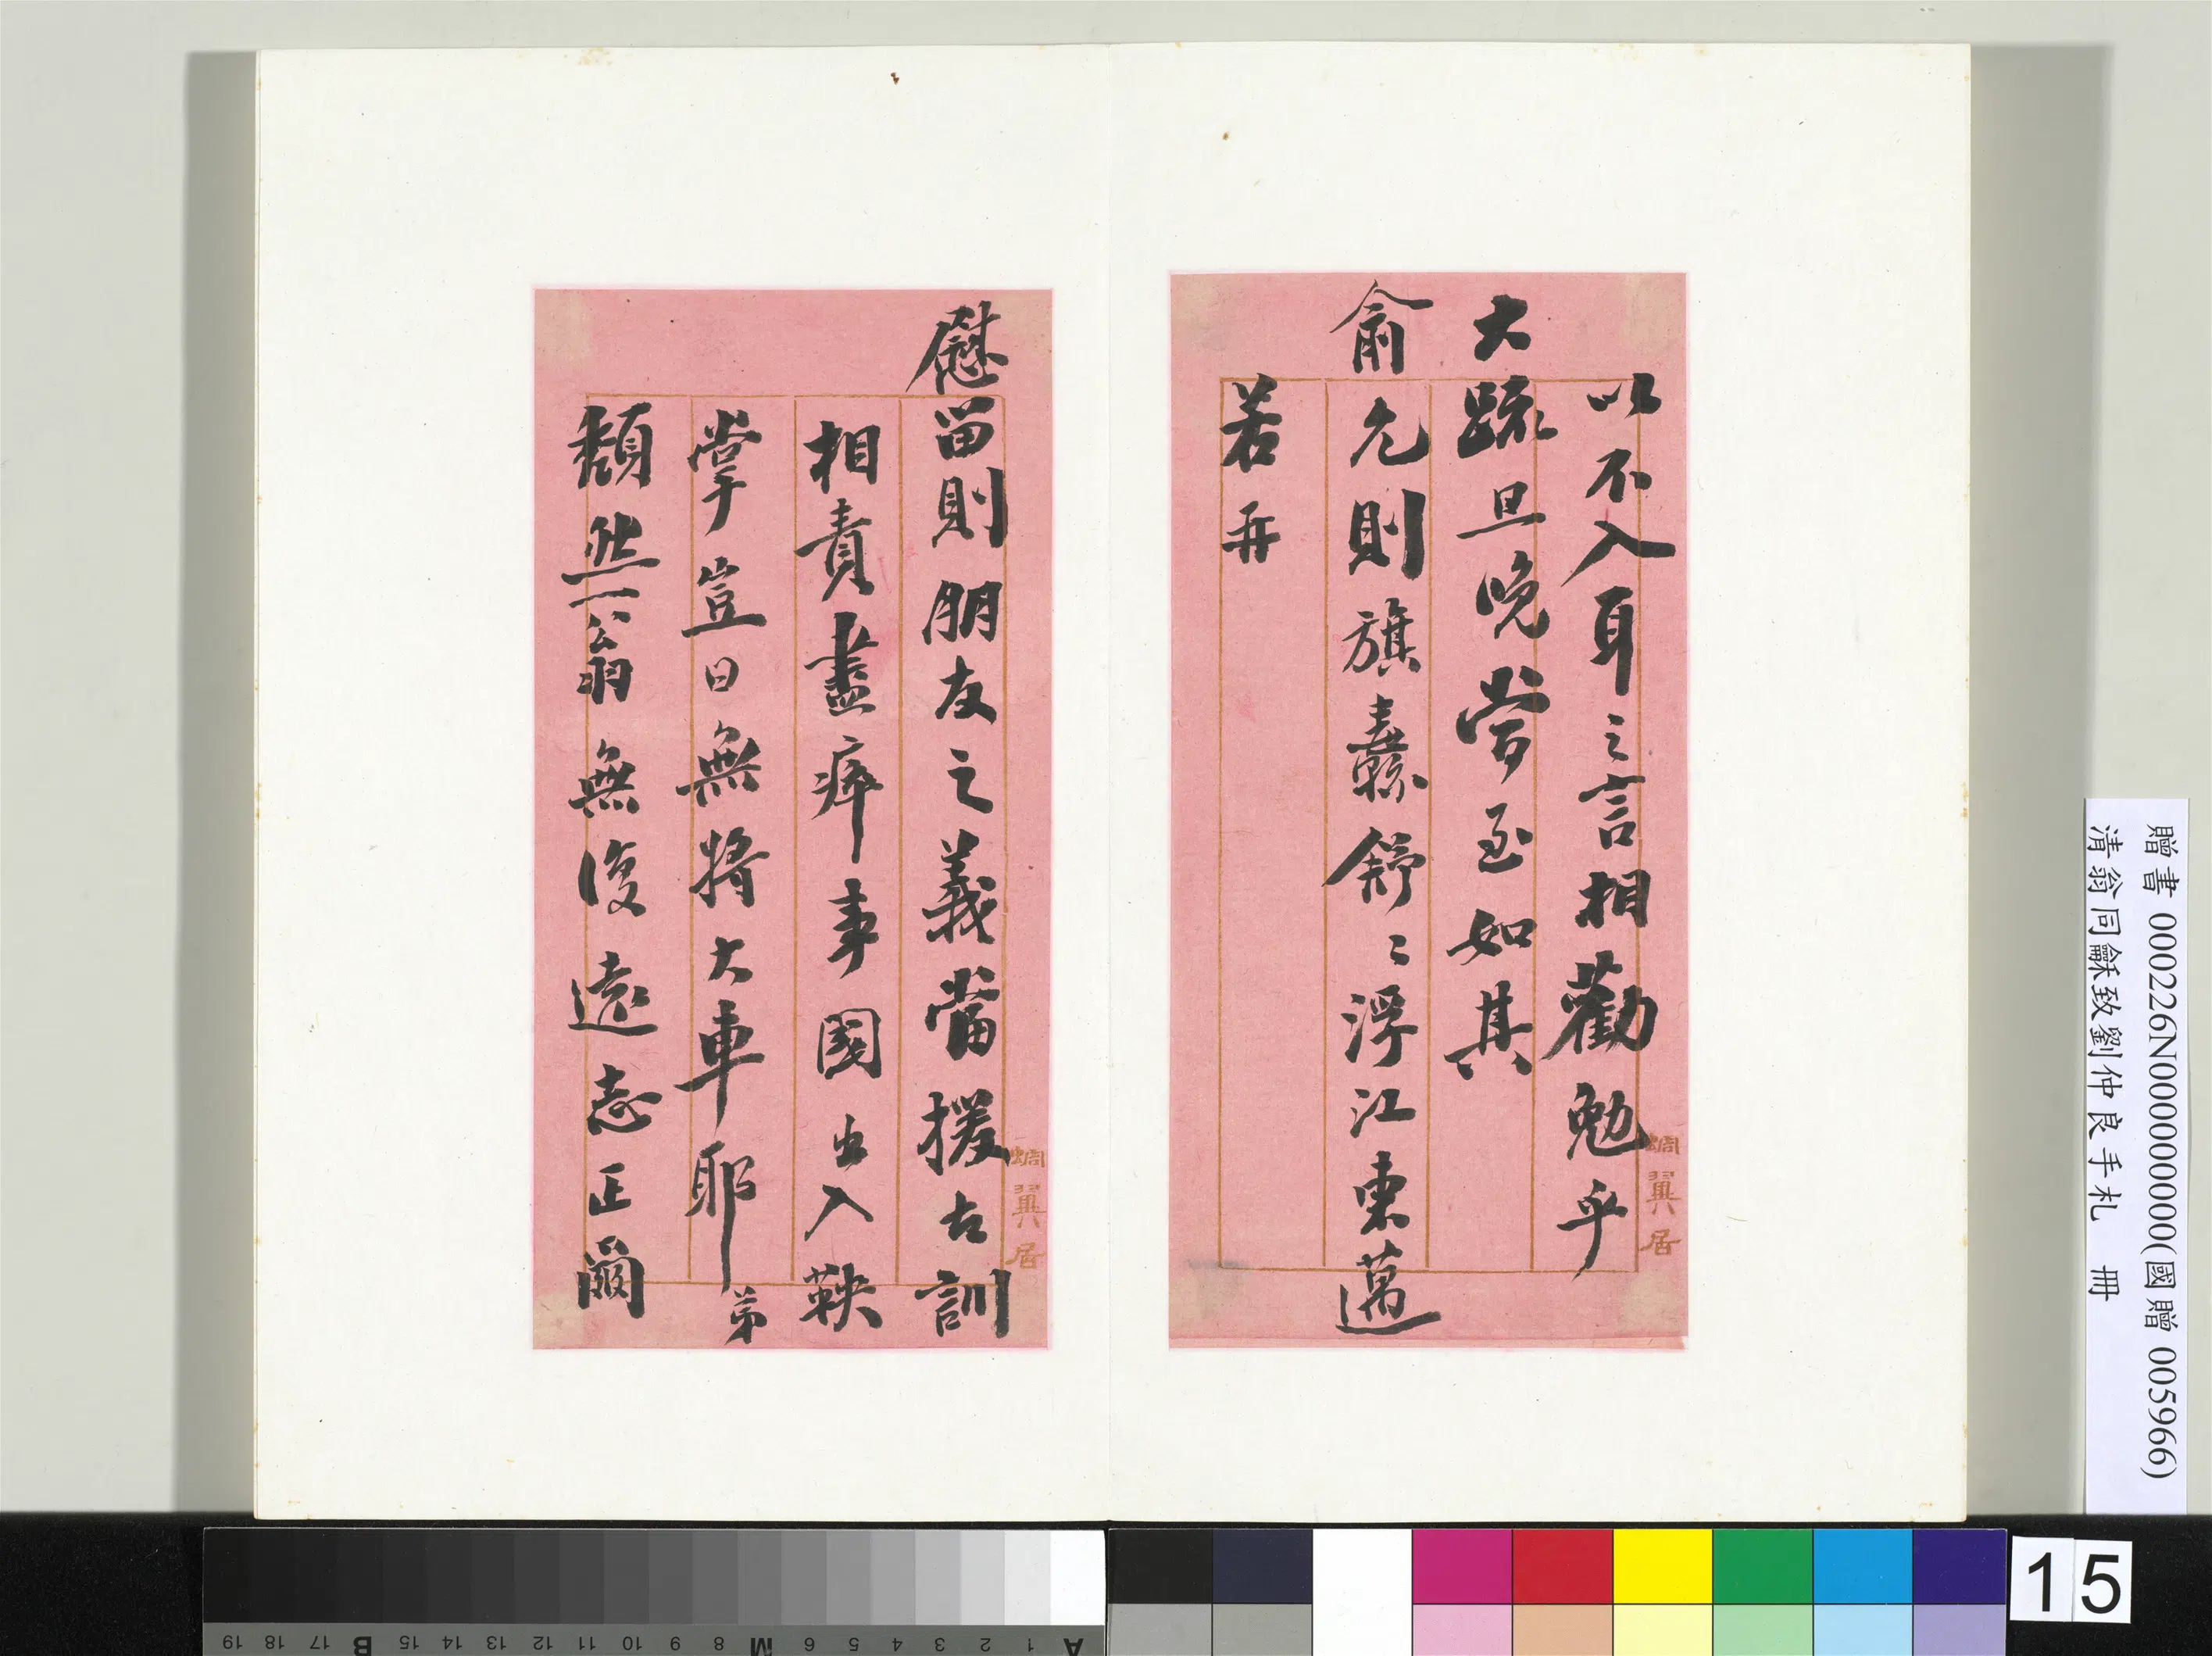 以不入耳之言相勸勉乎
大疏旦晚當至如其
俞允則旗纛舒〻浮江東邁
若再
蜩翼居
慰留則朋友之義當援古訓
相責盡瘁事國出入鞅
掌豈曰無將大車耶弟
頹然一翁無復遠志正爾
蜩翼居
贈書 000226N000000000(國贈 005966)
清翁同龢致劉仲良手札 冊
15
A 1 2 3 4 5 6 M 8 9 10 11 12 13 14 15 B 17 18 19